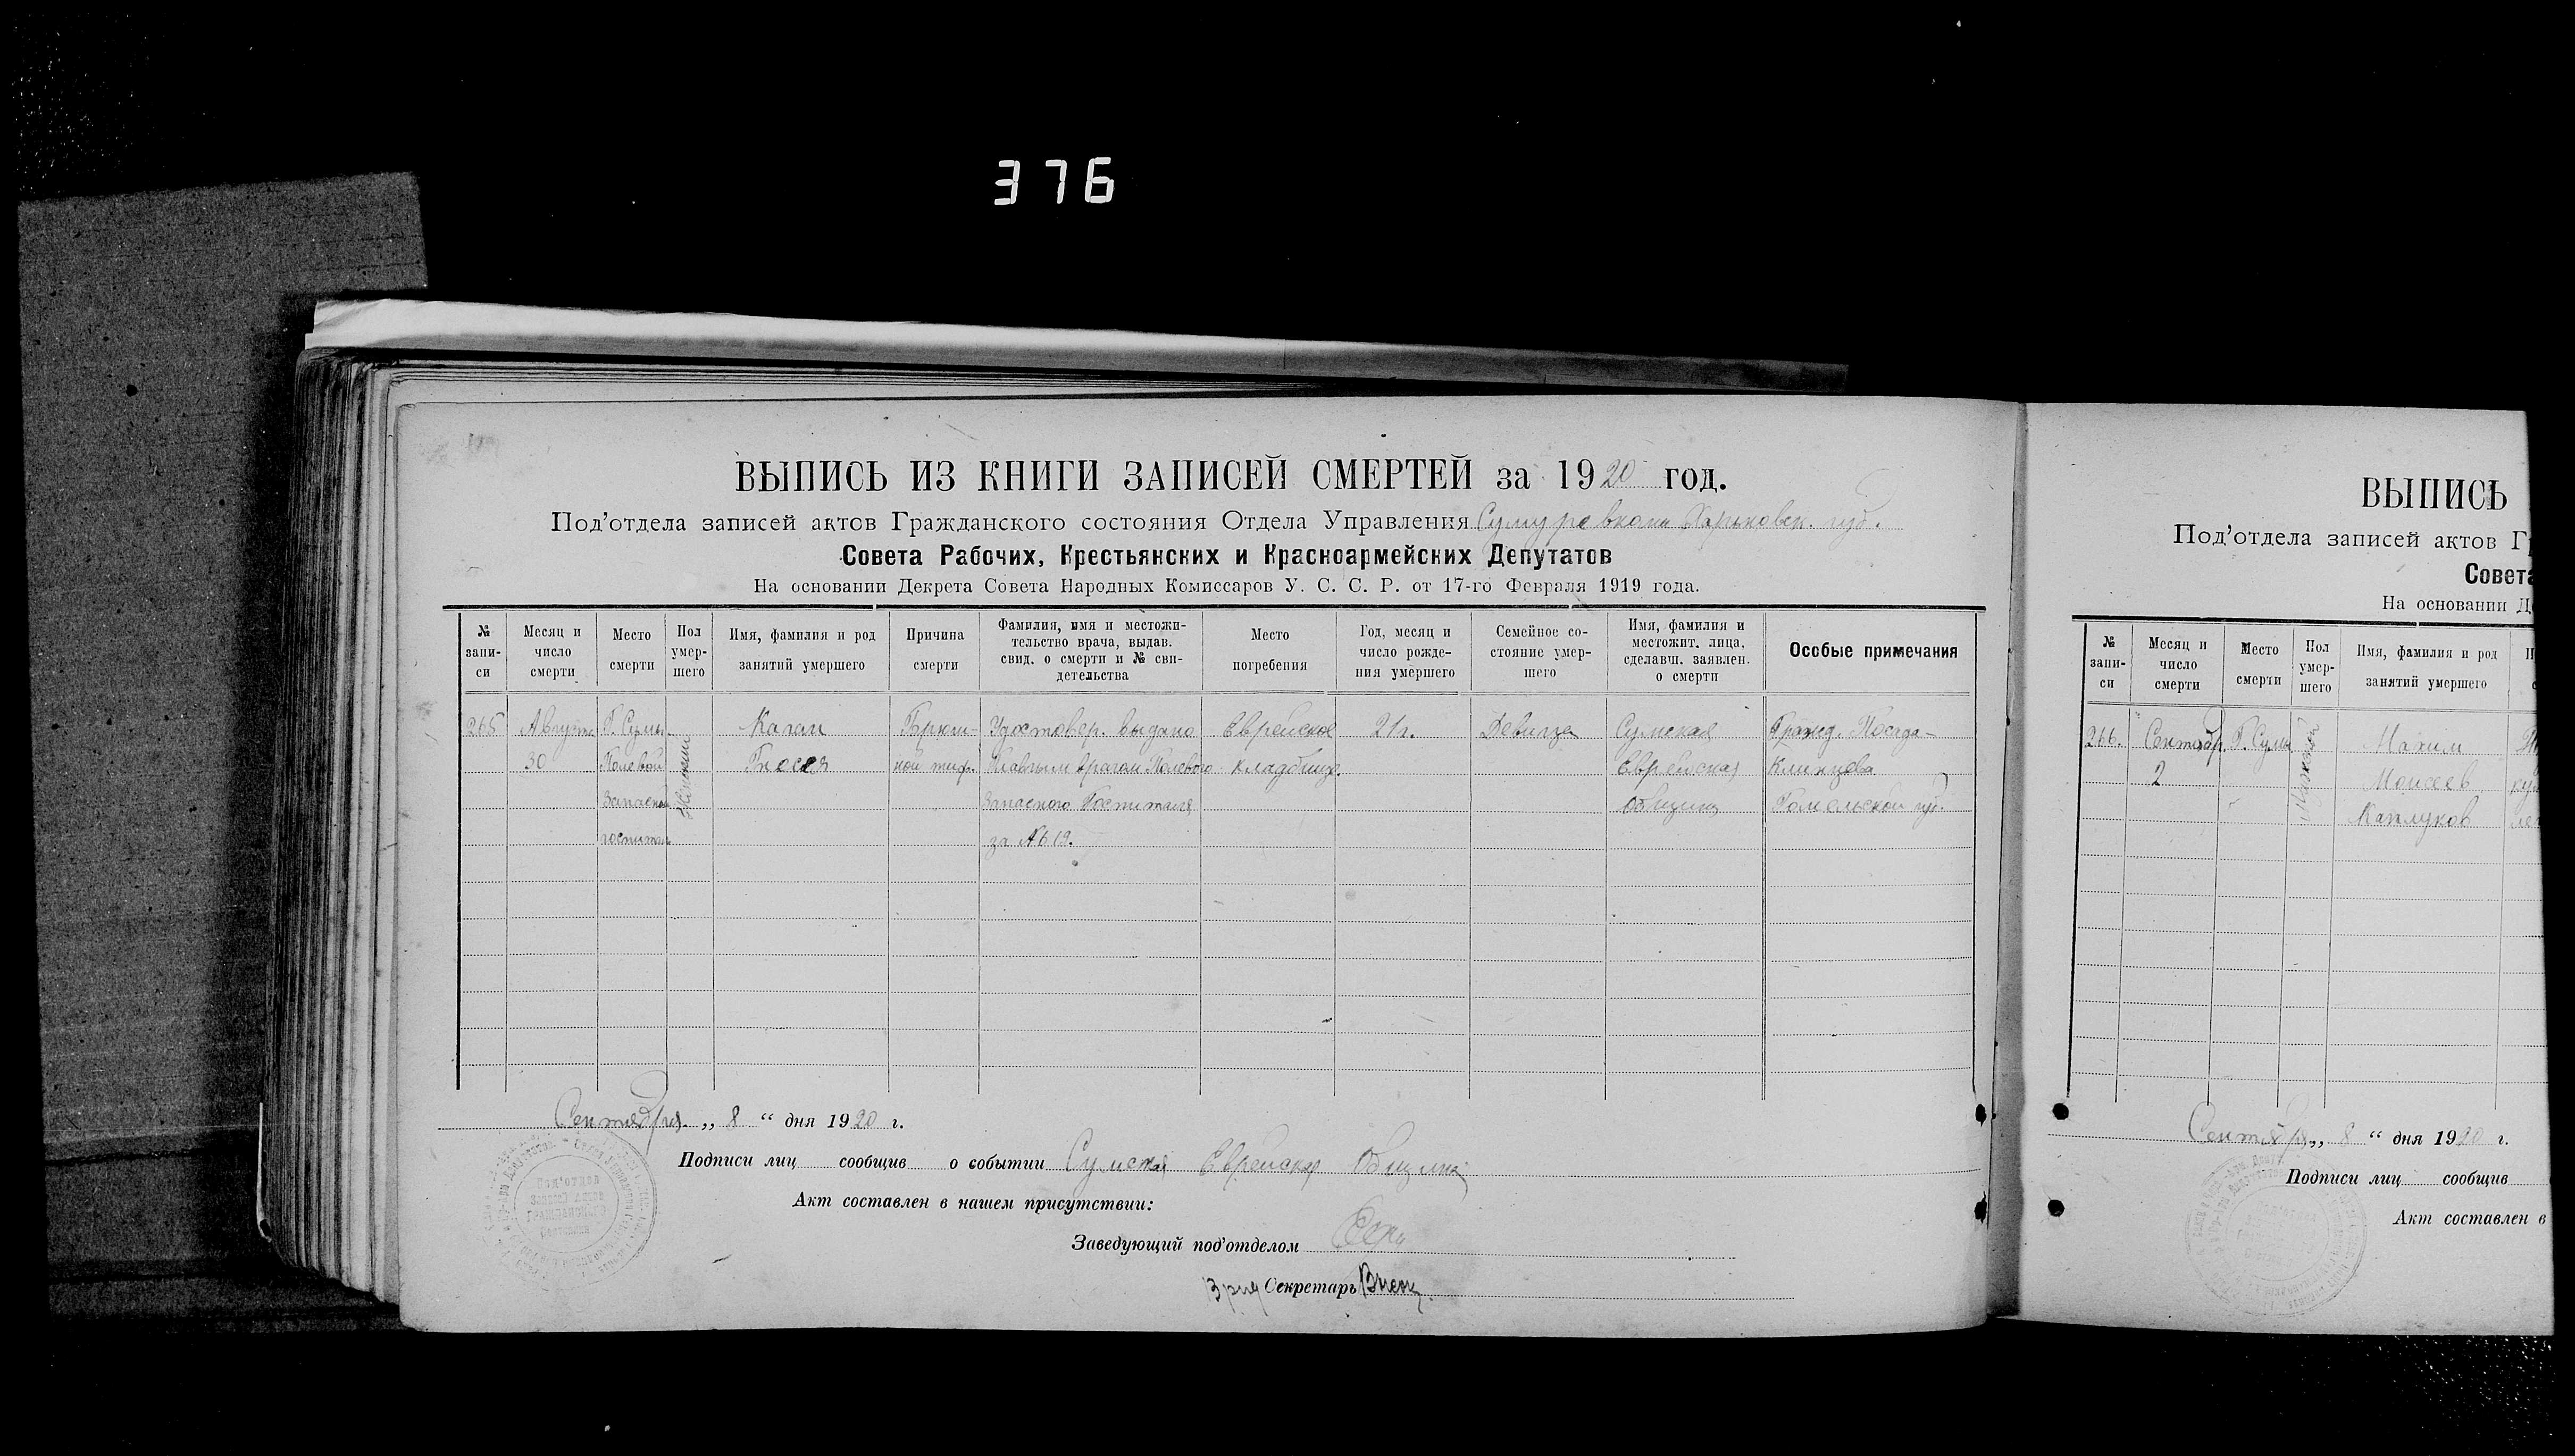 376
ВЫПИСЬ ИЗ КНИГИ ЗАПИСЕЙ СМЕРТЕЙ за 1920 год.
Под'отдела записей актов Гражданского состояния Отдела Управления Сумуревкома Харьковск. губ.
Совета Рабочих, Крестьянских и Красноармейских Депутатов
На основании Декрета Совета Народных Комиссаров У. С. С. Р. от 17-го Февраля 1919 года.
№ запи-си
Месяц и число смерти
Место смерти
Пол умер-шего
Имя, фамилия и род занятий умершего
Причина смерти
Фамилия, имя и местожи-тельство врача, выдав. свид. о смерти и № сви-детельства
Место погребения
Год, месяц и число рожде-ния умершего
Семейное со-стояние умер-шего
Имя, фамилия и местожит. лица, сделавш. заявлен. о смерти
Особые примечания
265
Августа
30
Г. Сумы
Полевой
Запасной
госпиталь
Женский
Каган
Брюш-
ной тиф.
Удостовер. выдано
Главным врачом Полевого
Запасного Госпиталя
за №19.
Еврейское
кладбище
21г.
Девица
Сумская
Еврейская
Община
Гражд. Посада
Клинцова
Гомельской губ.
Сентября „ 8 “ дня 1920 г.
Подписи лиц сообщив о событии Сумская Еврейская Община
Акт составлен в нашем присутствии:
Заведующий под'отделом
Врид Секретарь
Под'отдел
Записи Актов
Гражданского
Состояния
ВЫПИСЬ
Под'отдела записей актов Г
Совета
На основании Д
№ запи-си
Месяц и число смерти
Место смерти
Пол умер-шего
Имя, фамилия и род занятий умершего
266.
Сентябр
2
Г. Сумы
Мужской
Моисеев
Каплуков
Сентября „ 8 “ дня 1920 г.
Подписи лиц сообщив
Акт составлен в